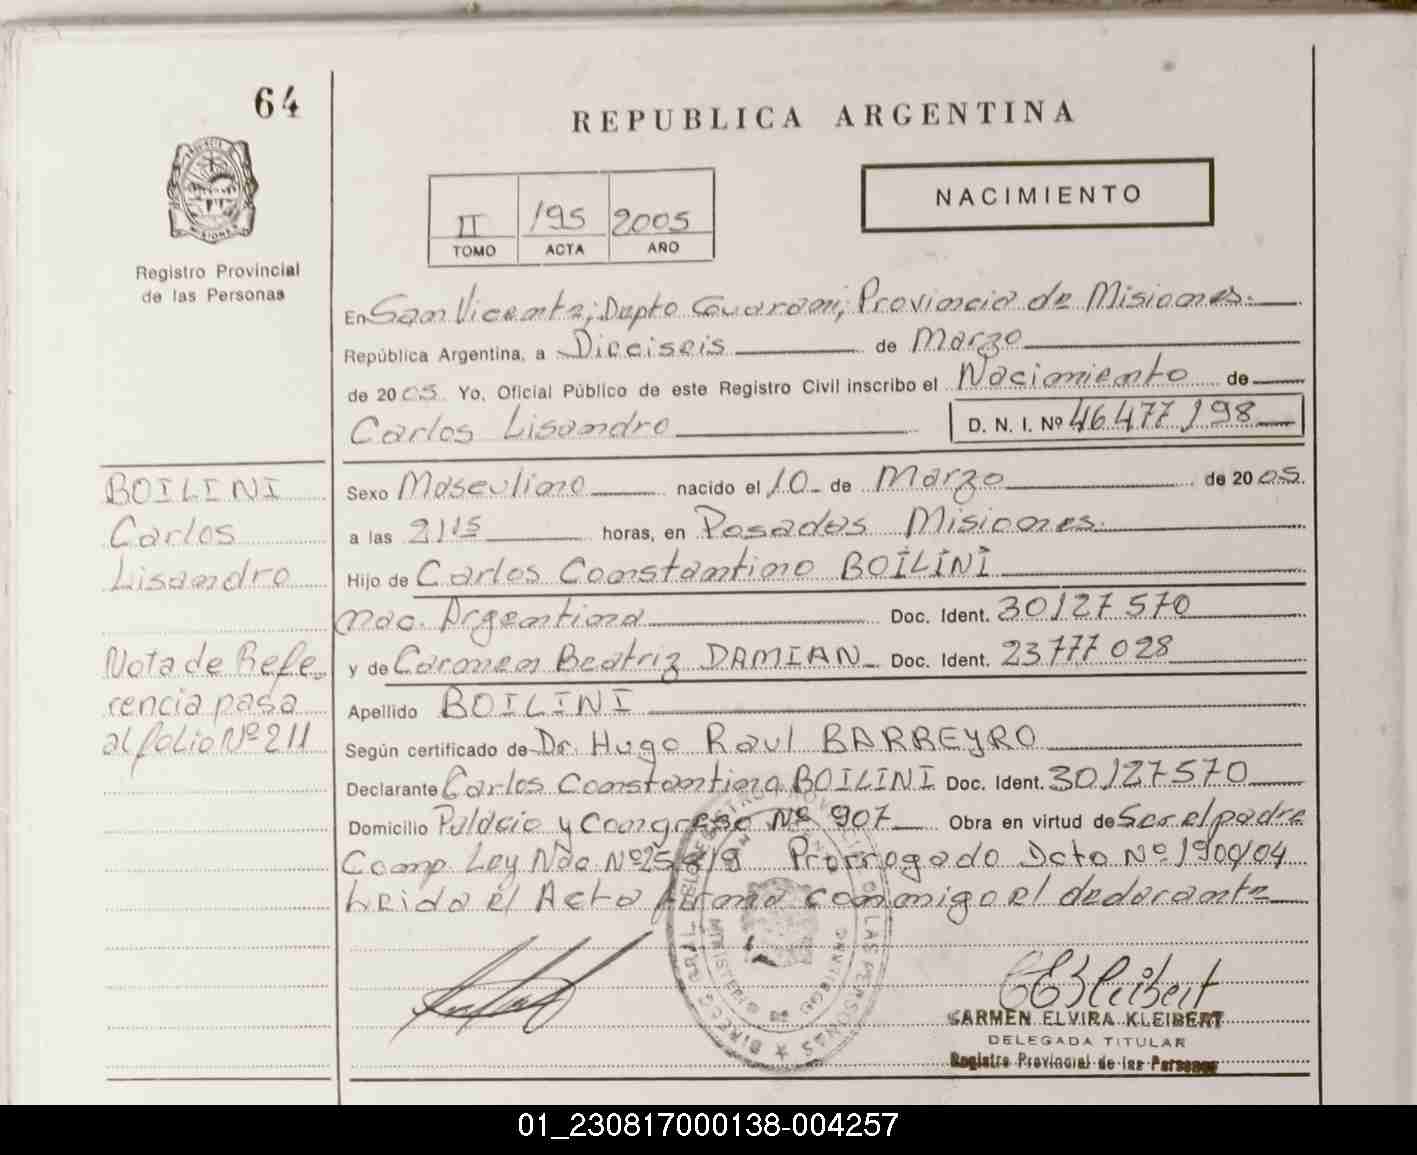 64
REPUBLICA ARGENTINA
NACIMIENTO
II 195 2005
TOMO ACTA AÑO
Registro Provincial
de las Personas
En San Vicente; Depto Guarani; Provincia de Misiones.
República Argentina, a Dieciseis de Marzo
de 2005 Yo, Oficial Público de este Registro Civil inscribo el Nacimiento de
Carlos Lisandro D. N. I. Nº 46.477.198
BOILINI
Carlos
Lisandro
Nota de Refe
rencia pasa
al folio Nº 211
Sexo Masculino nacido el 10 de Marzo de 2005.
a las 2115 horas, en Posadas Misiones.
Hijo de Carlos Constantino BOILINI
nac. Argentina Doc. Ident. 30127570
y de Carmen Beatriz DAMIAN Doc. Ident. 23777028
Apellido BOILINI
Según certificado de Dr. Hugo Raul BARREYRO
Declarante Carlos Constantino BOILINI Doc. Ident. 30127570
Domicilio Palacio y Congreso Nº 907 Obra en virtud de Ser el padre
Comp. Ley Nac Nº 25819 Prorrogado Dcto Nº 1900/04
Leida el Acta firma conmigo el declarante
CEKleibert
CARMEN ELVIRA KLEIBERT
DELEGADA TITULAR
Registro Provincial de las Personas
01_230817000138-004257